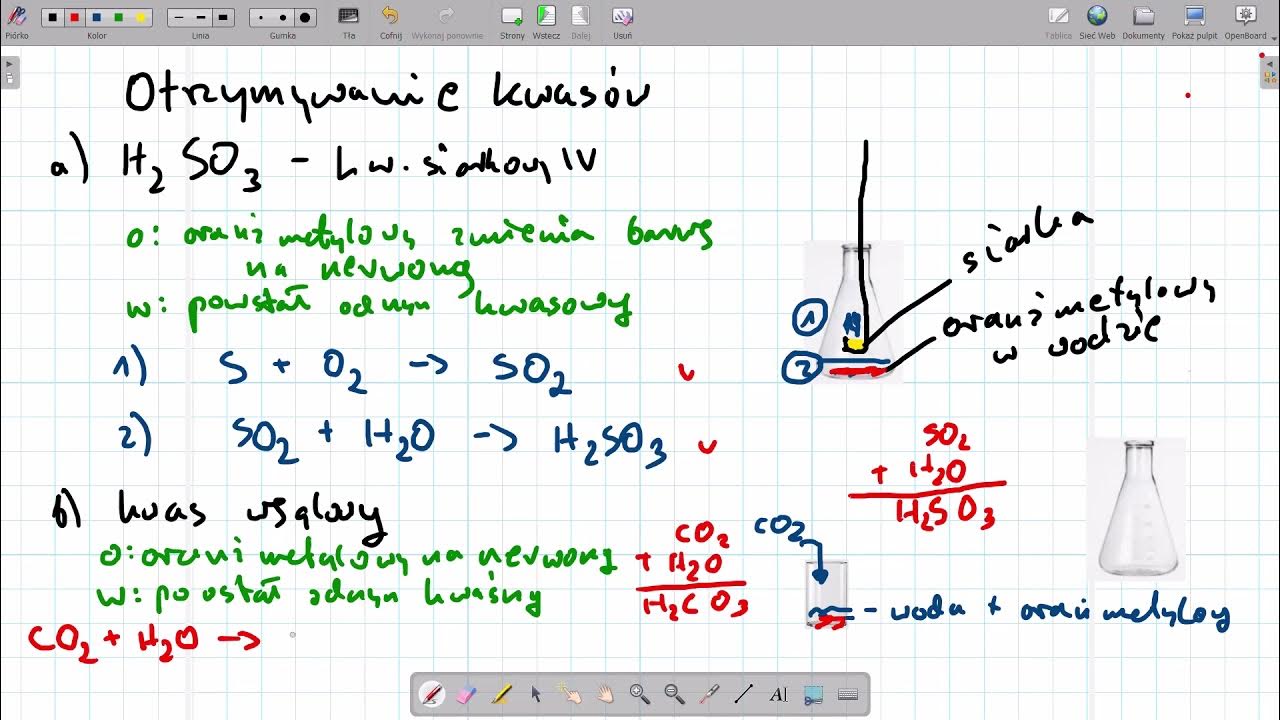 Piórko Kolor Linia Gumka Tła Cofnij Wykonaj ponownie Strony Wstecz Dalej Usuń Tablica Sieć Web Dokumenty Pokaż pulpit OpenBoard
Otrzymywanie kwasów
a) H₂SO₃ - kw. siarkowy IV
o: oranż metylowy zmienia barwę
na czerwoną
w: powstał odczyn kwasowy
1) S + O₂ → SO₂ v
2) SO₂ + H₂O → H₂SO₃ v
siarka
oranż metylowy
w wodzie
1
2
SO₂
+ H₂O
H₂SO₃
b) kwas węglowy
o: oranż metylowy na czerwony
w: powstał odczyn kwaśny
CO₂ + H₂O →
CO₂
+ H₂O
H₂CO₃
CO₂
- woda + oranż metylowy
AI